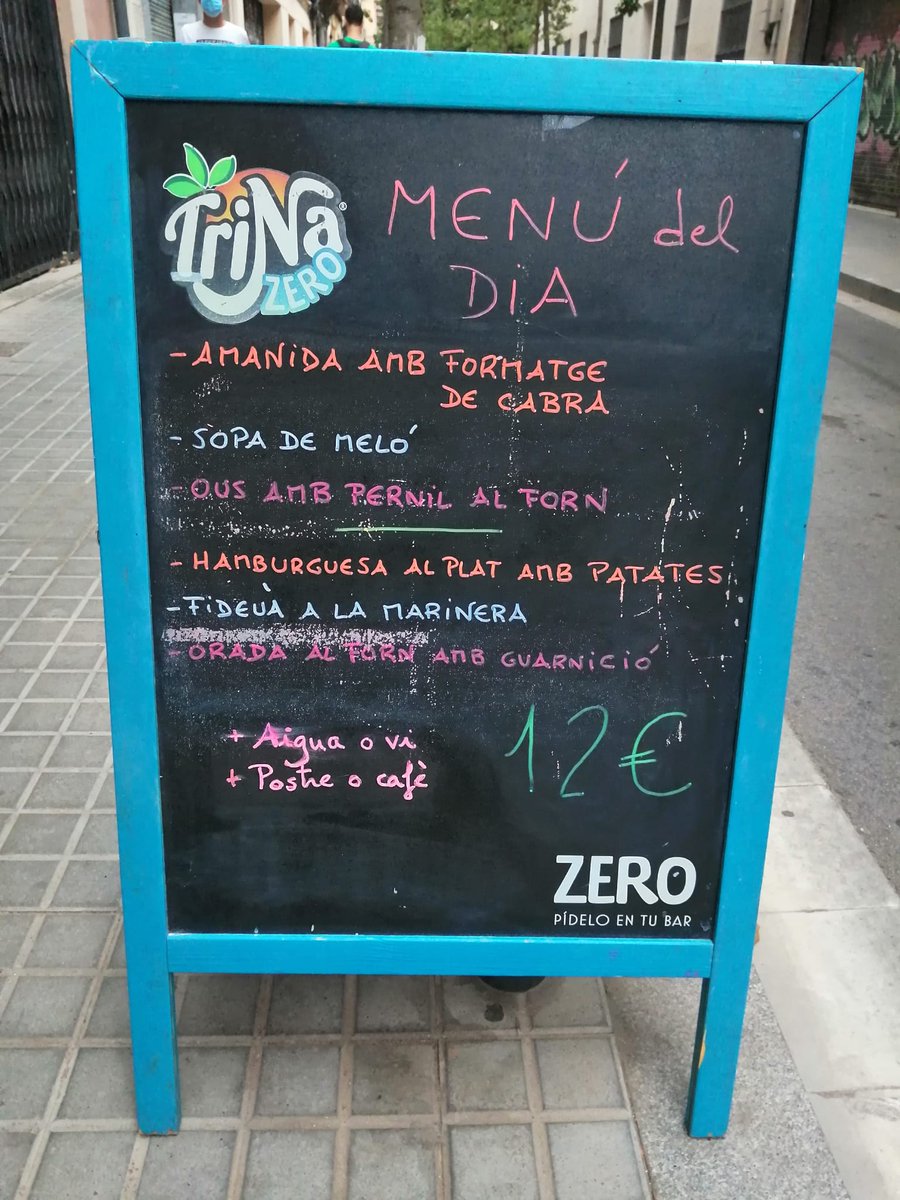 TriNa®
ZERO
MENÚ del
DiA
- AMANiDA AMB FORMATGE
DE CABRA
- SOPA DE MELÓ
- OUS AMB PERNIL AL FORN
- HAMBURGUESA AL PLAT AMB PATATES
- FiDEUÀ A LA MARINERA
- ORADA AL FORN AMB GUARNICIÓ
+ Aigua o vi
+ Postre o cafè
12€
ZERO
PÍDELO EN TU BAR